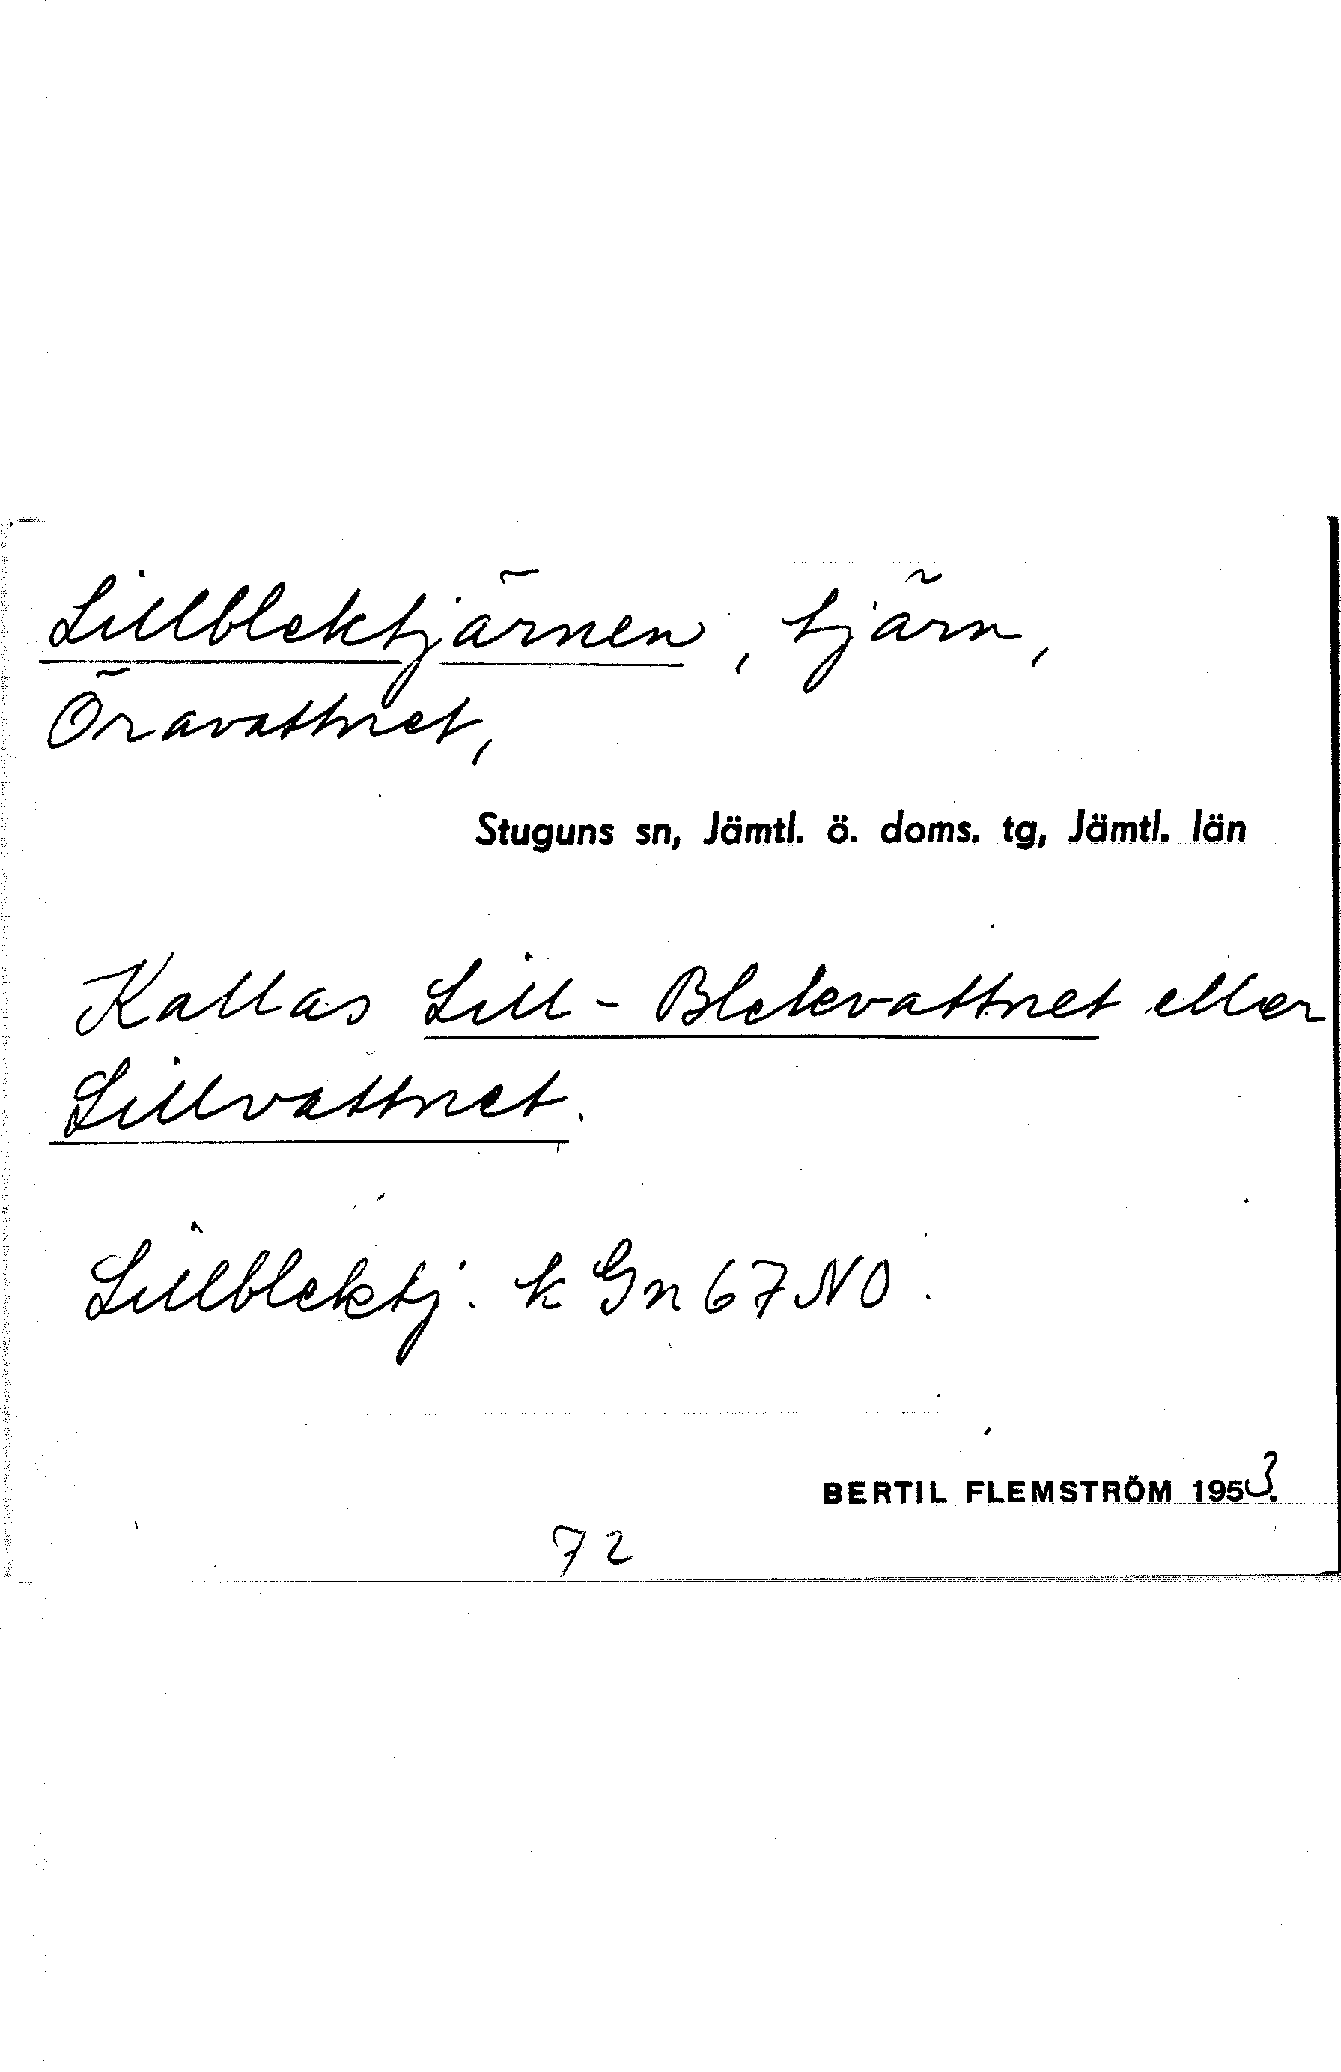 Lillblektjärnen, tjärn,
Öravattnet,
Stuguns sn, Jämtl. ö. doms. tg, Jämtl. län
Kallas Lill-Blekvattnet eller
Lillvattnet.
Lillblektj. k Gn 67 NO.
BERTIL FLEMSTRÖM 1953.
72